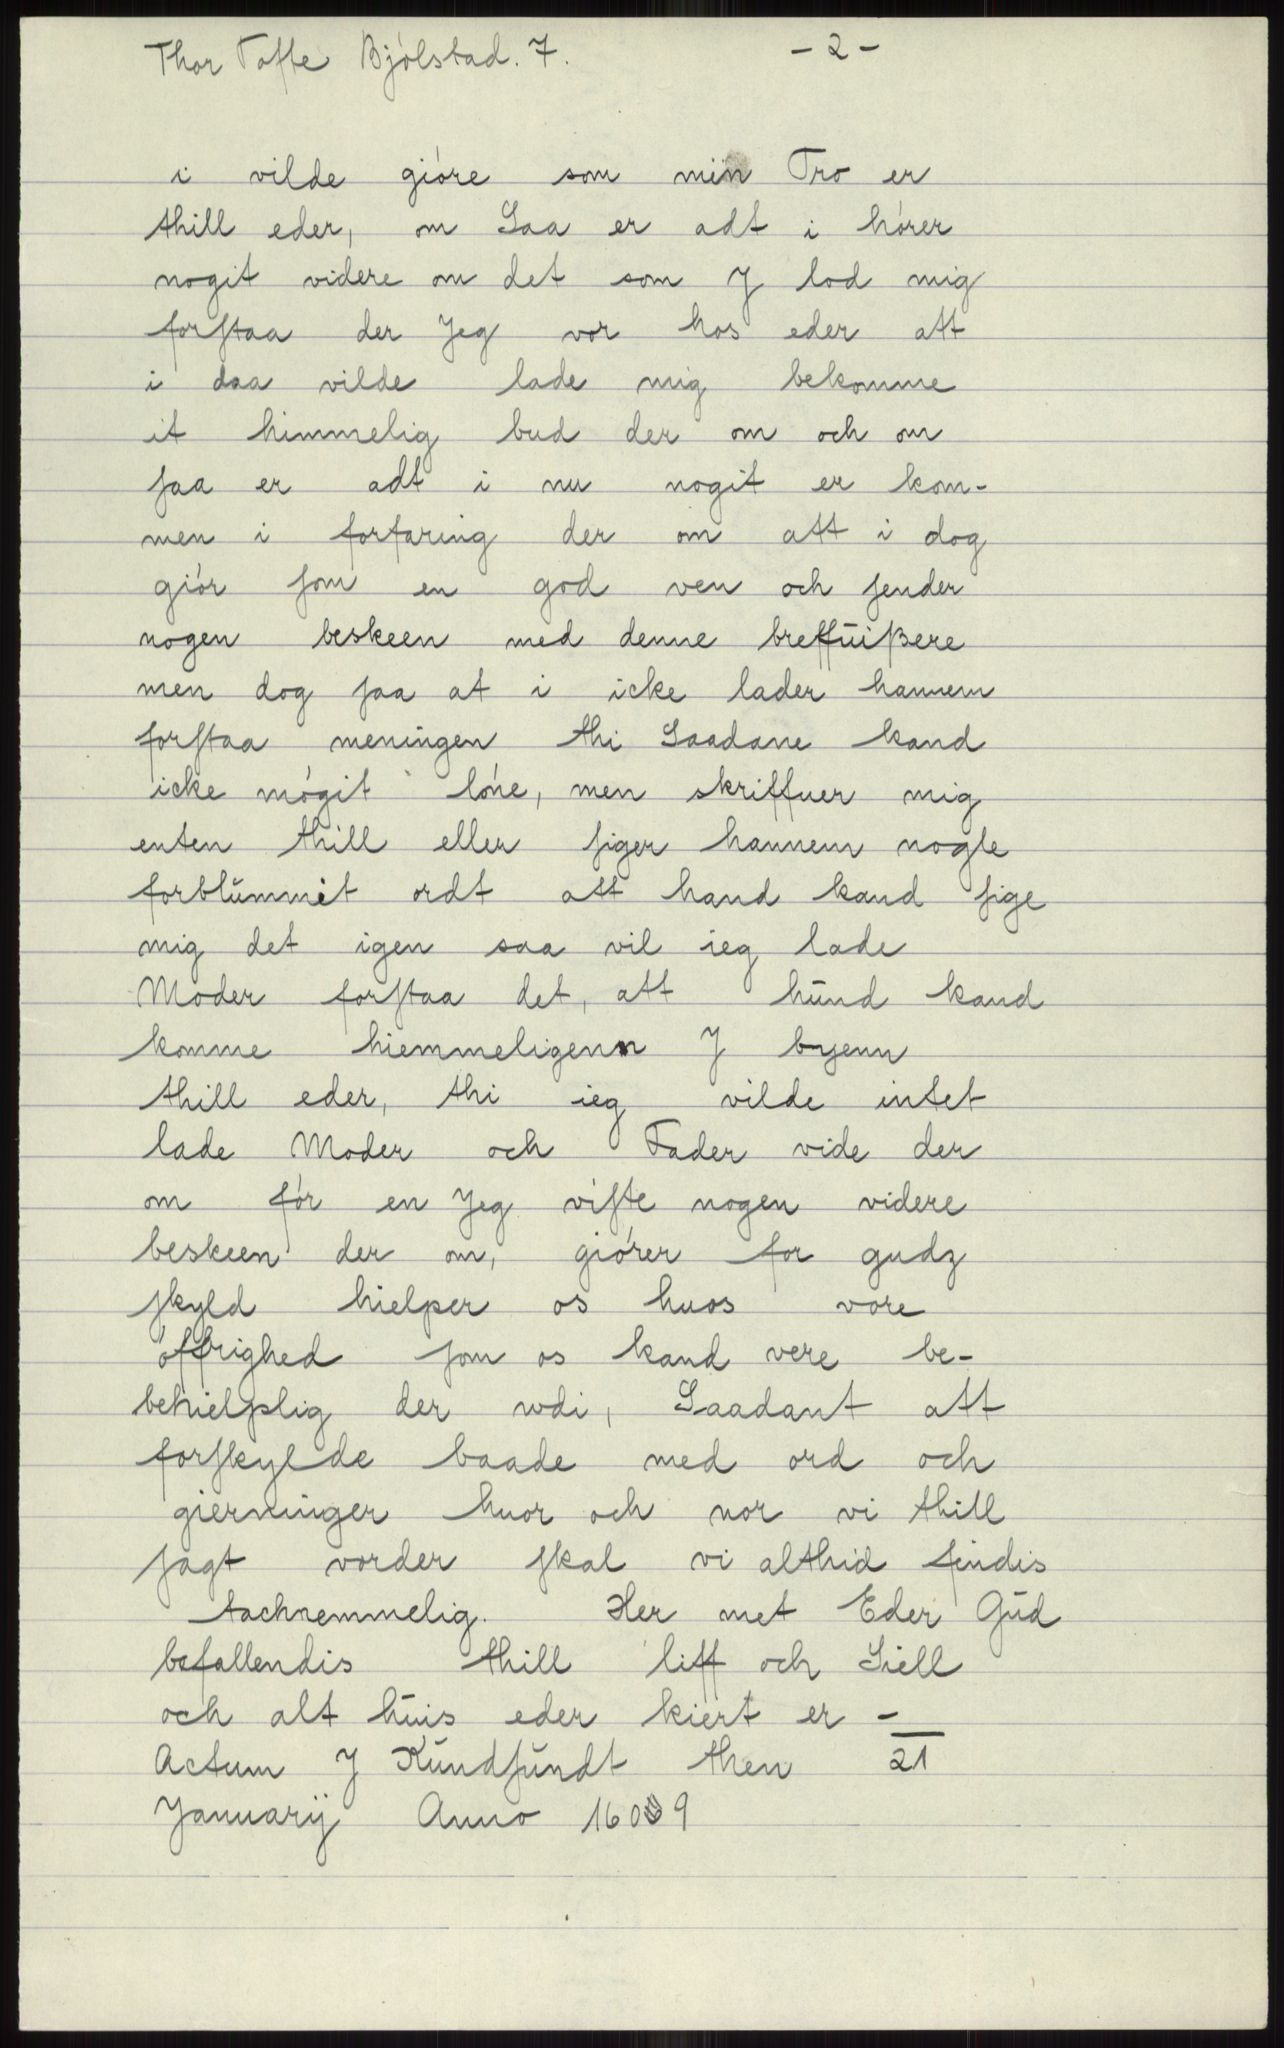 Thor Tofte Bjólstad. 7. - 2 -
i vilde gióre som min Tro er
thill eder, om Saa er adt i hórer
nogit videre om det som J lod mig
forstaa der Jeg vor hos eder att
i daa vilde lade mig bekomme
it himmelig bud der om och om
saa er adt i nu nogit er kom-
men i forfaring der om att i dog
giór som en god ven och sender
nogen beskeen med denne breffūißere
men dog saa at i icke lader hannem
forstaa meningen thi Saadane kand
icke mógit lóne, men skriffuer mig
enten thill eller siger hannem nogle
forblūmmit ordt att hand kand sige
mig det igen saa vil ieg lade
Moder forstaa det, att hūnd kand
komme hiemmeligenn J byenn
thill eder, thi ieg vilde intet
lade Moder och Fader vide der
om fór en Jeg viste nogen videre
beskeen der om, giórer for gudz
skyld hielper os huos vore
óffrighed som os kand vere be-
behielpslig der wdi, Saadant att
forskylde baade med ord och
gierninger huor och nor vi thill
sagt vorder skal vi althid findis
tachnemmelig. Her met Eder Gūd
befallendis thill liff och Siell
och alt hūis eder kiert er -
Actum J Kūndsūndt then 21
Januarij Anno 1609